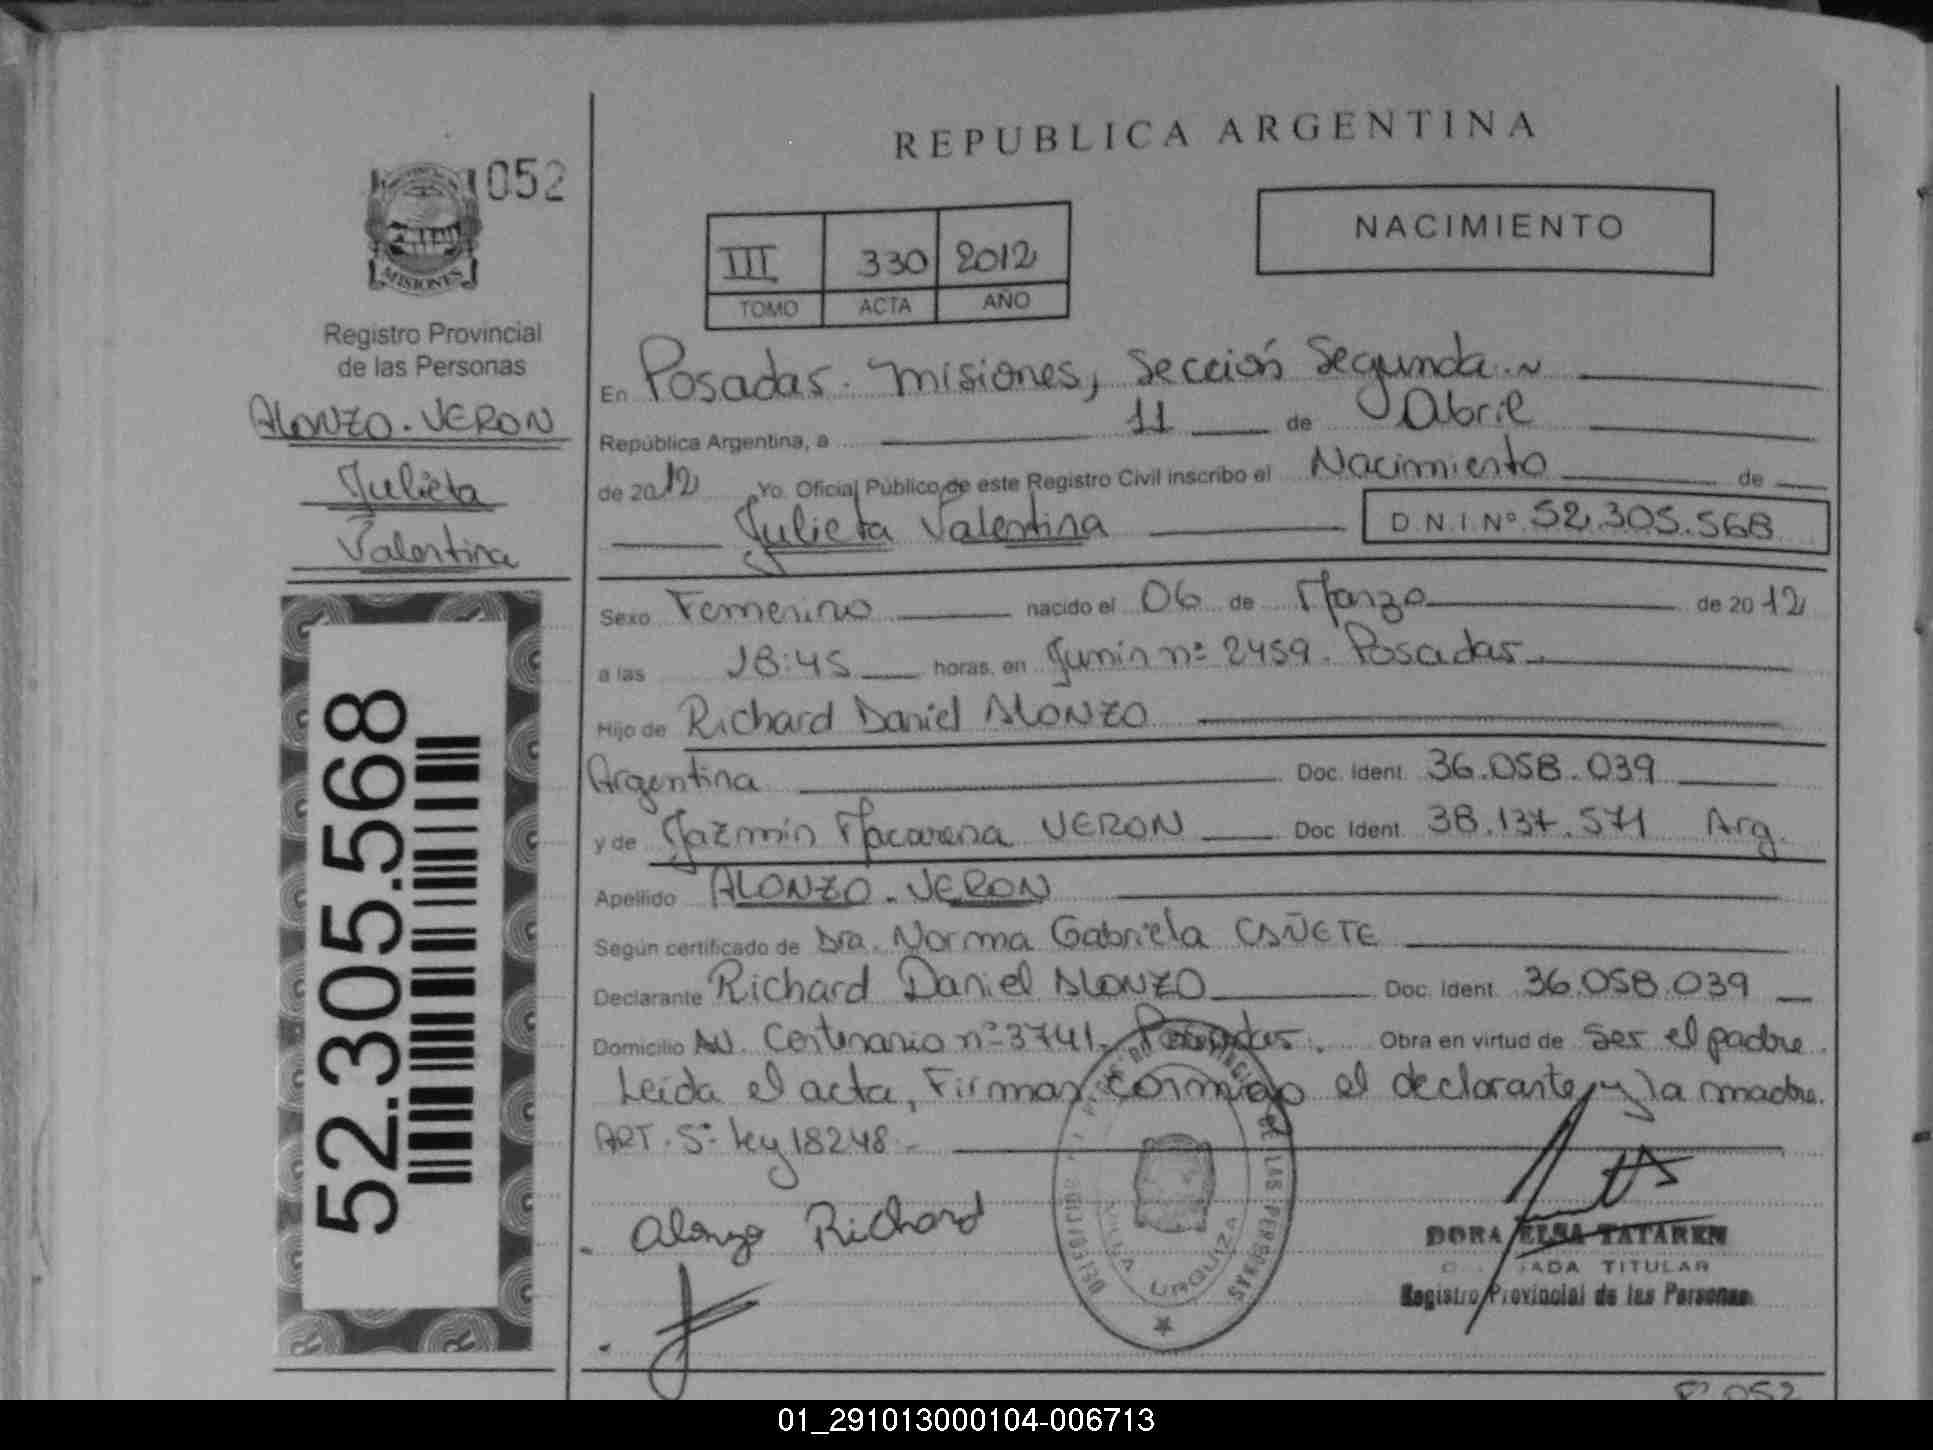 REPUBLICA ARGENTINA
052
MISIONES
Registro Provincial
de las Personas
ALONZO - VERON
Julieta
Valentina
52.305.568
III 330 2012
TOMO ACTA AÑO
NACIMIENTO
En Posadas. Misiones, Sección Segunda.
República Argentina, a 11 de Abril
de 2012 Yo. Oficial Público de este Registro Civil inscribo el Nacimiento de
Julieta Valentina D.N.I.Nº 52.305.568
Sexo Femenino nacido el 06 de Marzo de 2012
a las 18:45 horas, en Junín nº 2459. Posadas.
Hijo de Richard Daniel ALONZO
Argentina Doc. Ident. 36.058.039
y de Jazmín Macarena VERON Doc. Ident. 38.137.571 Arg.
Apellido ALONZO - VERON
Según certificado de Dra. Norma Gabriela CAÑETE
Declarante Richard Daniel ALONZO Doc. Ident. 36.058.039
Domicilio AV. Centenario nº 3741. Posadas. Obra en virtud de ser el padre.
Leída el acta, Firman conmigo el declarante y la madre.
ART. 5º Ley 18248.-
Alonzo Richard
REGISTRO PROVINCIAL DE LAS PERSONAS
VILLA URQUIZA
DORA ELSA TATAREN
TITULAR
Registro Provincial de las Personas
Fº 052
01_291013000104-006713